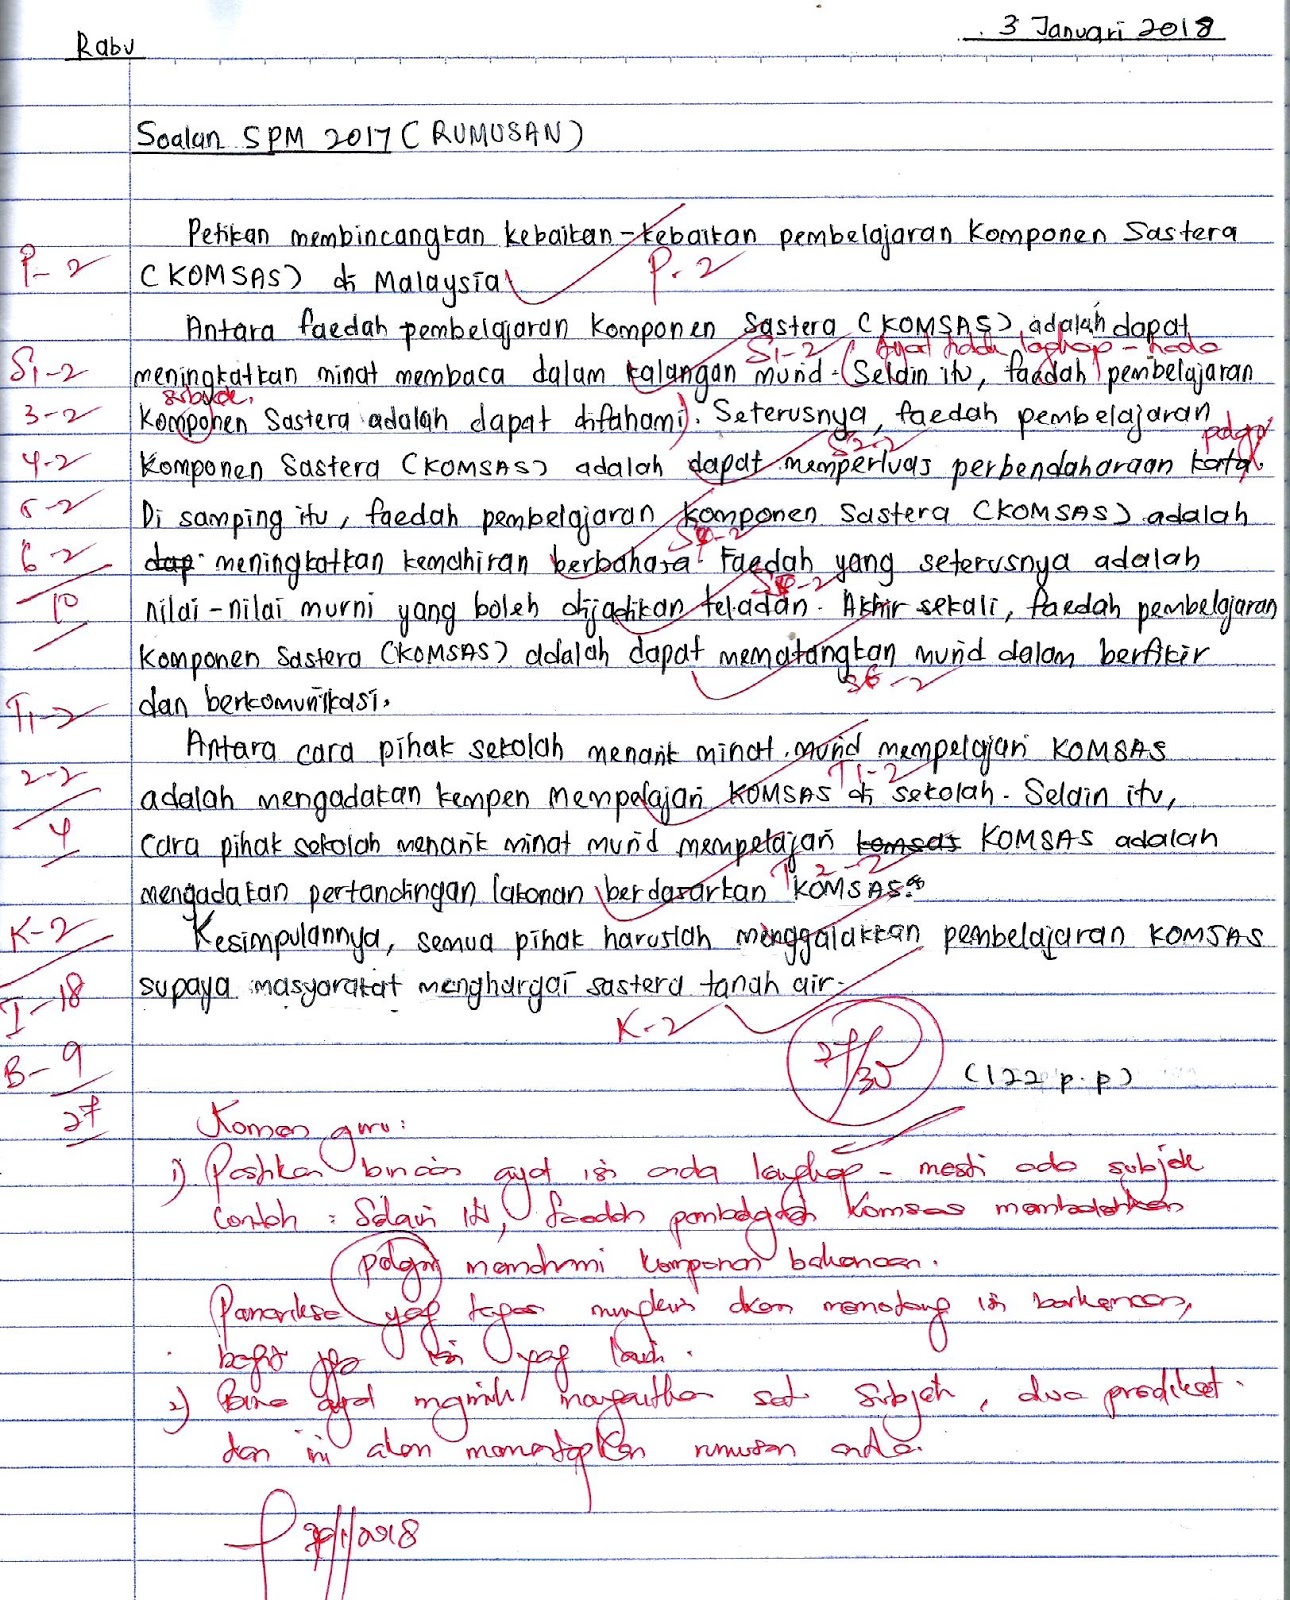 Rabu
3 Januari 2018
Soalan SPM 2017 (RUMUSAN)
Petikan membincangkan kebaikan-kebaikan pembelajaran Komponen Sastera
P-2
P-2
(KOMSAS) di Malaysia
Antara faedah pembelajaran Komponen Sastera (KOMSAS) adalah dapat
S1-2
S1-2
(Ayat tidak lengkap - tiada
meningkatkan minat membaca dalam kalangan murid. (Selain itu, faedah pembelajaran
subjek.
3-2
Komponen Sastera adalah dapat difahami). Seterusnya, faedah pembelajaran
S2-2
pelajar
4-2
Komponen Sastera (KOMSAS) adalah dapat memperluas perbendaharaan kata.
5-2
Di samping itu, faedah pembelajaran Komponen Sastera (KOMSAS) adalah
6-2
dap meningkatkan kemahiran berbahasa. Faedah yang seterusnya adalah
10
nilai-nilai murni yang boleh dijadikan teladan. Akhir sekali, faedah pembelajaran
Komponen Sastera (KOMSAS) adalah dapat mematangkan murid dalam berfikir
S6-2
T1-2
dan berkomunikasi.
Antara cara pihak sekolah menarik minat murid mempelajari KOMSAS
2-2
T1-2
adalah mengadakan kempen mempelajari KOMSAS di sekolah. Selain itu,
4
cara pihak sekolah menarik minat murid mempelajari komsas KOMSAS adalah
T2-2
mengadakan pertandingan lakonan berdasarkan KOMSAS.
K-2
Kesimpulannya, semua pihak haruslah menggalakkan pembelajaran KOMSAS
I-18
supaya masyarakat menghargai sastera tanah air.
K-2
27/30
B-9
(122 p.p)
27
Komen guru:
1) Pastikan binaan ayat isi anda lengkap - mesti ada subjek
Contoh : Selain itu, faedah pembelajaran Komsas membolehkan
pelajar memahami komponen
Pemeriksa yang tegas mungkin akan memotong isi berkenaan,
begitu juga isi yang lain.
2) Bina ayat majmuk satu subjek, dua predikat.
dan ini akan memantapkan rumusan anda.
/1/2018